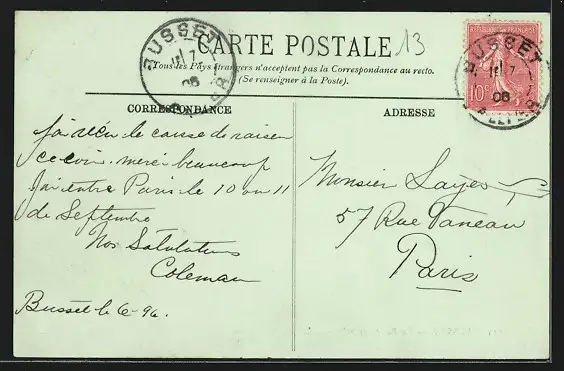 BUSSET
06
ALLIER
CARTE POSTALE
13
Tous les Pays étrangers n'acceptent pas la Correspondance au recto.
(Se renseigner à la Poste).
BUSSET
06
ALLIER
10c
CORRESPONDANCE
ADRESSE
la caisse de raisin
ce soir. merci beaucoup
Paris le 10 ou 11
de Septembre
Nos Salutations
Coleman
Busset le 6-9
Monsieur
57 Rue Vaneau
Paris